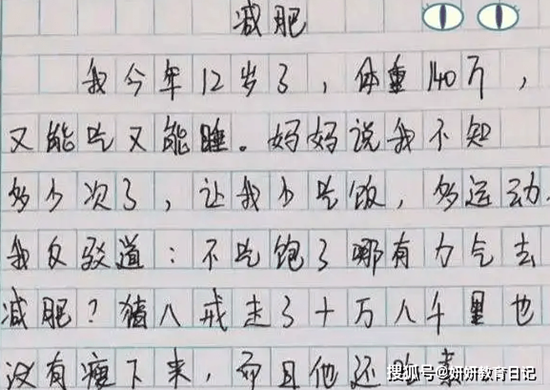 减肥
我今年12岁了，体重140斤，
又能吃又能睡。妈妈说我不知
多少次了，让我少吃饭，多运动.
我反驳道：不吃饱了哪有力气去
减肥？猪八戒走了十万八千里也
没有瘦下来，而且他还
搜狐号@妍妍教育日记